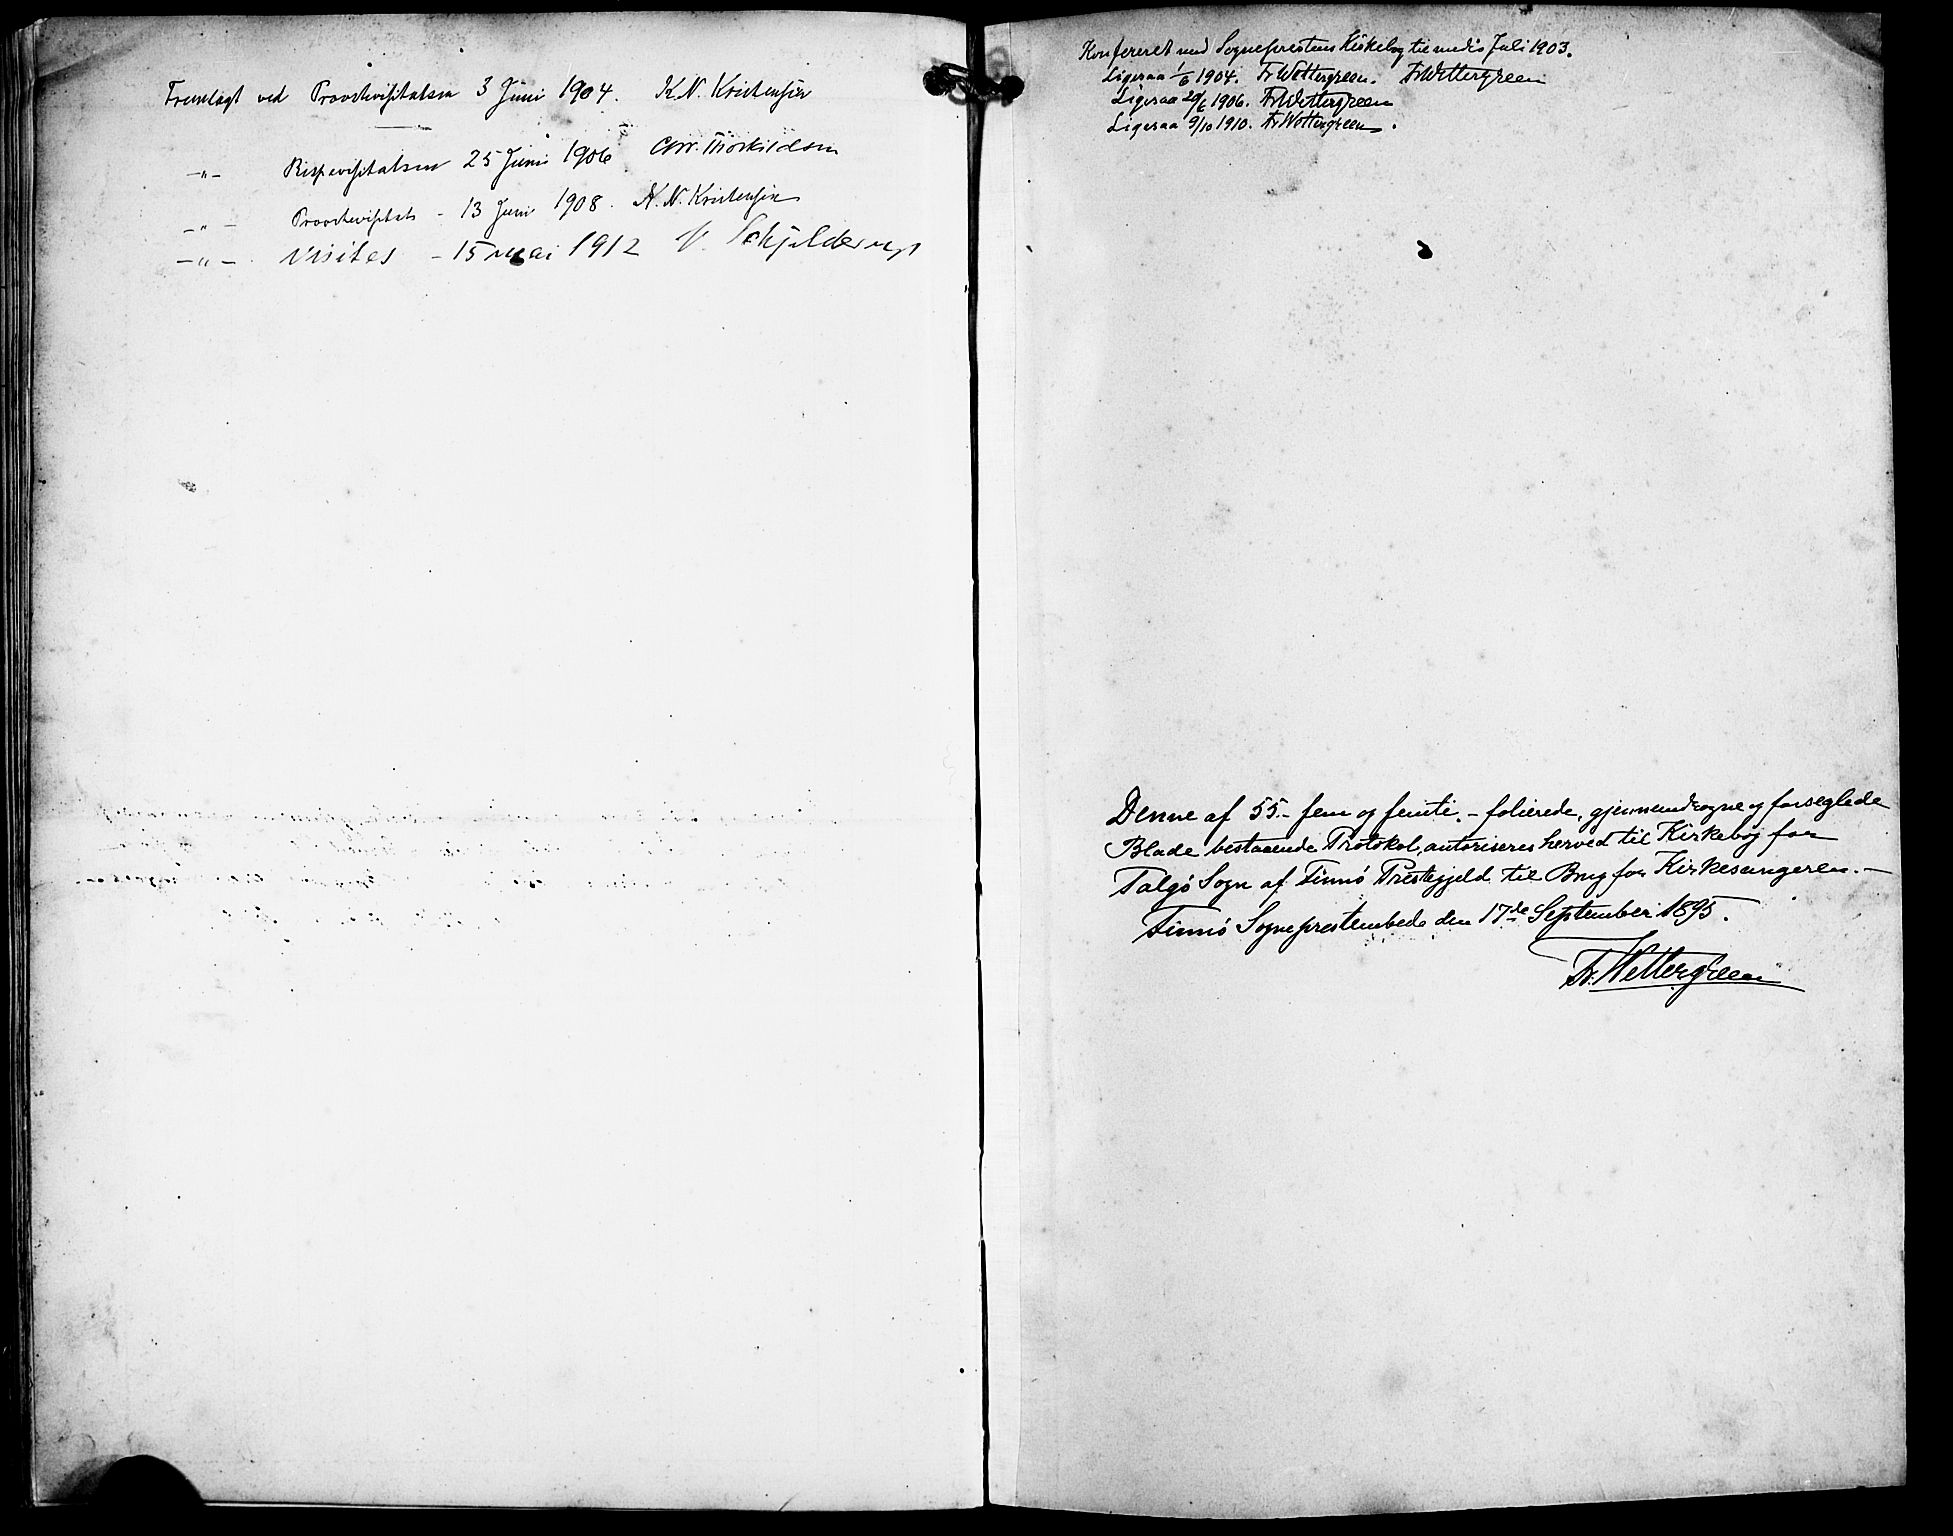 Fremlagt ved Provstevisitatsen 3 Juni 1904. K. N. Kristensen
-"- Bispevisitatsen 25 Juni 1906 Chr. Thorkildsen
-"- Provstevisitats - 13 Juni 1908. K. N. Kristensen
-"- Visitas - 15 mai 1912 V. Schjelderup
Konfereret med Sogneprestens Kirkebog til medio Juli 1903.
Ligesaa 1/6 1904. Fr Wettergreen. Fr Wettergreen
Ligesaa 20/6 1906. Fr Wettergreen
Ligesaa 9/10 1910. Fr Wettergreen.
Denne af 55.- fem og femti.- folierede, gjennemdragne og forseglede
Blade bestaaende Protokol, autoriseres herved til Kirkebog for
Talgø Sogn af Finnø Prestegjeld til Brug for Kirkesangeren.-
Finnø Sogneprestembede den 17de September 1895.
Fr. Wettergreen